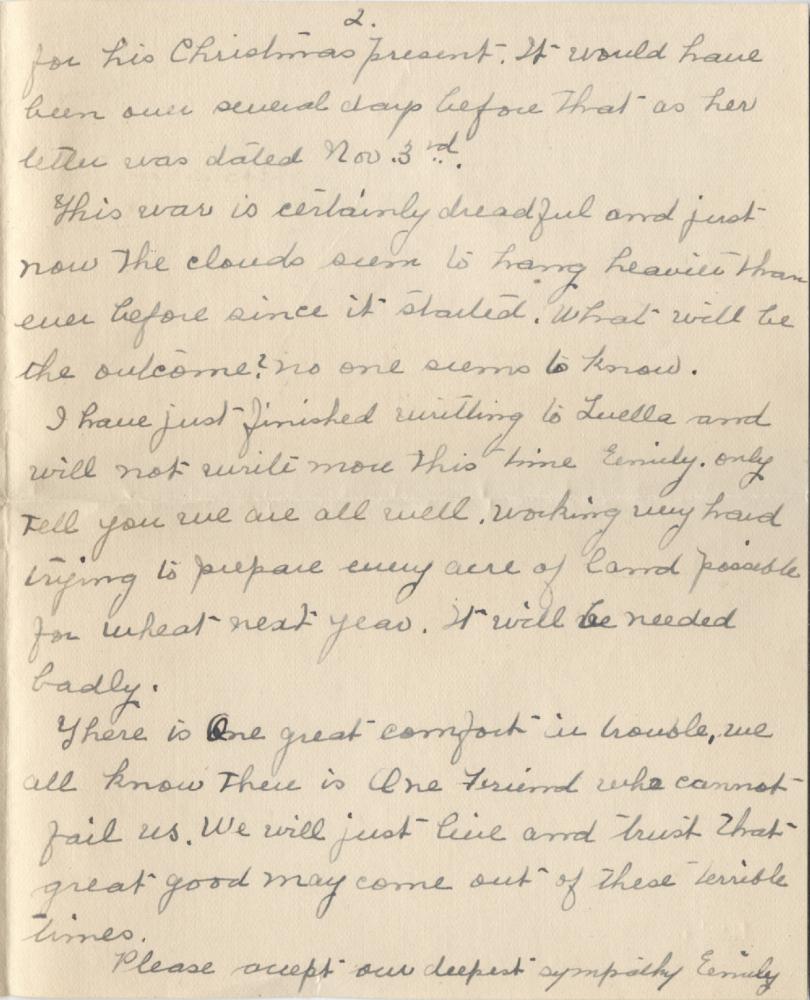 2.
for his Christmas present. It would have
been over several days before that as her
letter was dated Nov. 3rd.
This war is certainly dreadful and just
now the clouds seem to hang heavier than
ever before since it started. What will be
the outcome? no one seems to know.
I have just finished writting to Luella and
will not write more this time Emily. only
tell you we are all well, working very hard
trying to prepare every acre of land possible
for wheat next year. It will be needed
badly.
There is One great comfort in trouble, we
all know there is One Friend who cannot
fail us. We will just live and trust that
great good may come out of these terrible
times.
Please accept our deepest sympathy Emily